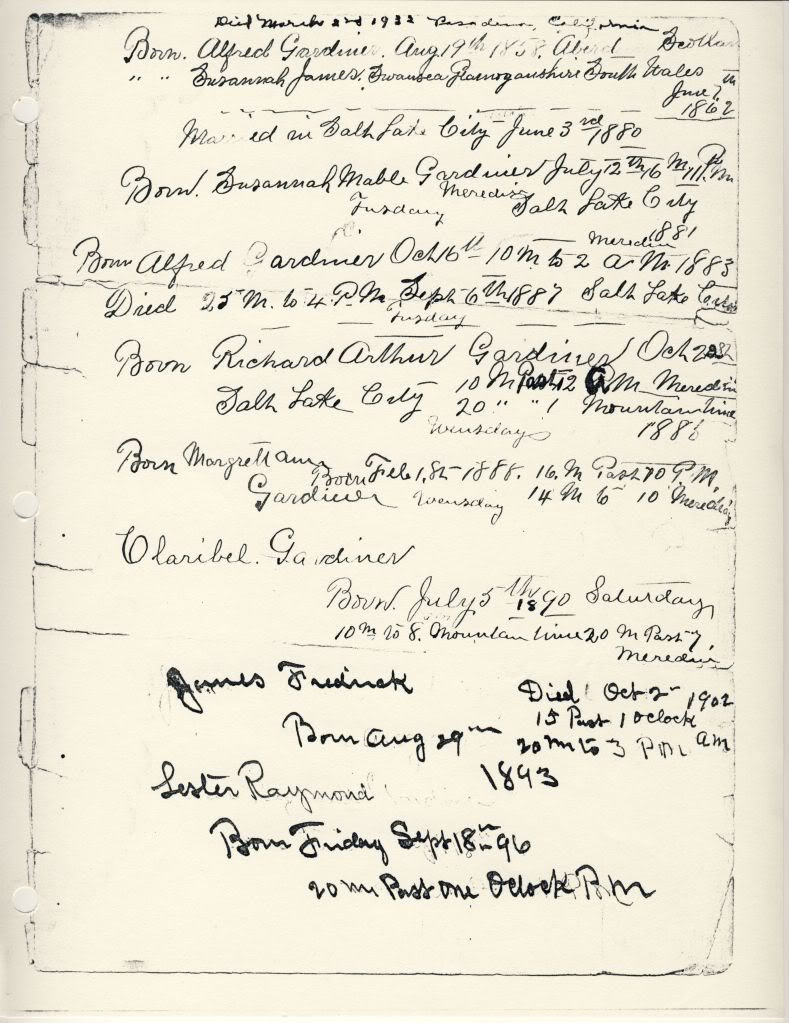 Died March 2nd 1932 Pasadena, California
Born. Alfred Gardiner. Aug 19th 1858. Aberd Scotlan
" " Susannah James. Swansea Glamoganshire South Wales
June 7th
1862
Married in Salt Lake City June 3rd 1880
Born. Susannah Mable Gardiner July 12th 16 M 11 P.M
Meredian
Tusday Salt Lake City
1881
Born Alfred Gardiner Oct 16th 10 M to 2 A M 1883
Meredin
Died 25 M. to 4 P.M Sept 6th 1887 Salt Lake
Tusday
Born Richard Arthur Gardiner Oct
10 M Past 12 M Meredin
Salt Lake City 20 " " 1 Mountain time
Wensdays 1886
Born Margrett ann Born Feb 1.st 1888. 16. M Past 10 P.M.
Gardiner Wensday 14 M to 10
Claribel. Gardiner
Born. July 5th 1890 Saturday
10 M to 8. Mountain time 20 M Past 7
Meredin
James Fredrick
Died Oct 2 1902
15 Past 1 Oclock
Born Aug 29 20 M to 3 P.M a m
1893
Lester Raymond
Born Friday Sept 18th 96
20 M Past one Oclock P.M